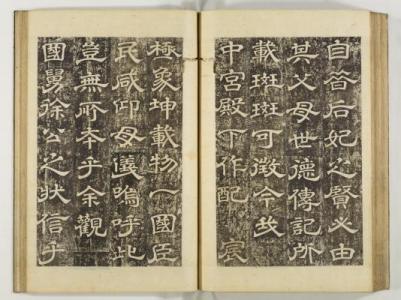 自昔后妃之賢必由
其父母世德傳記所
載斑斑可徵今我
中宮殿下作配 宸
極象坤載物一國臣
民咸仰母儀嗚呼此
豈無所本乎余觀
國舅徐公之狀信乎